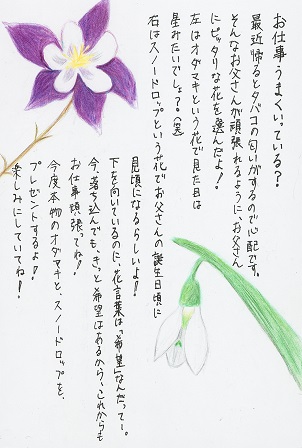 お仕事うまくいっている?
最近帰るとタバコの匂いがするので心配です。
そんなお父さんが頑張れるように、お父さん
にピッタリな花を選んだよ!
左はオダマキという花で見た目は
星みたいでしょ?。(笑)
右はスノードロップという花でお父さんの誕生日頃に
見頃になるらしいよ!!
下を向いているのに、花言葉は「希望」なんだって〜。
今、落ち込んでも、きっと希望はあるから、これからも
お仕事頑張ってね!
今度本物のオダマキと、スノードロップを、
プレゼントするよ!
楽しみにしていてね!